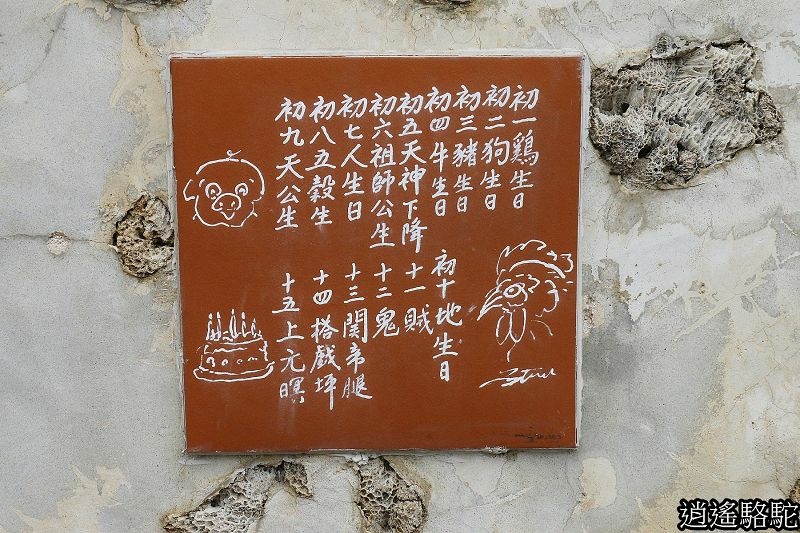 初一鷄生日
初二狗生日
初三豬生日
初四牛生日
初五天神下降
初六祖師公生
初七人生日
初八五穀生
初九天公生
初十地生日
十一賊
十二鬼
十三関帝腿
十四搭戲坪
十五上元暝
逍遙駱駝